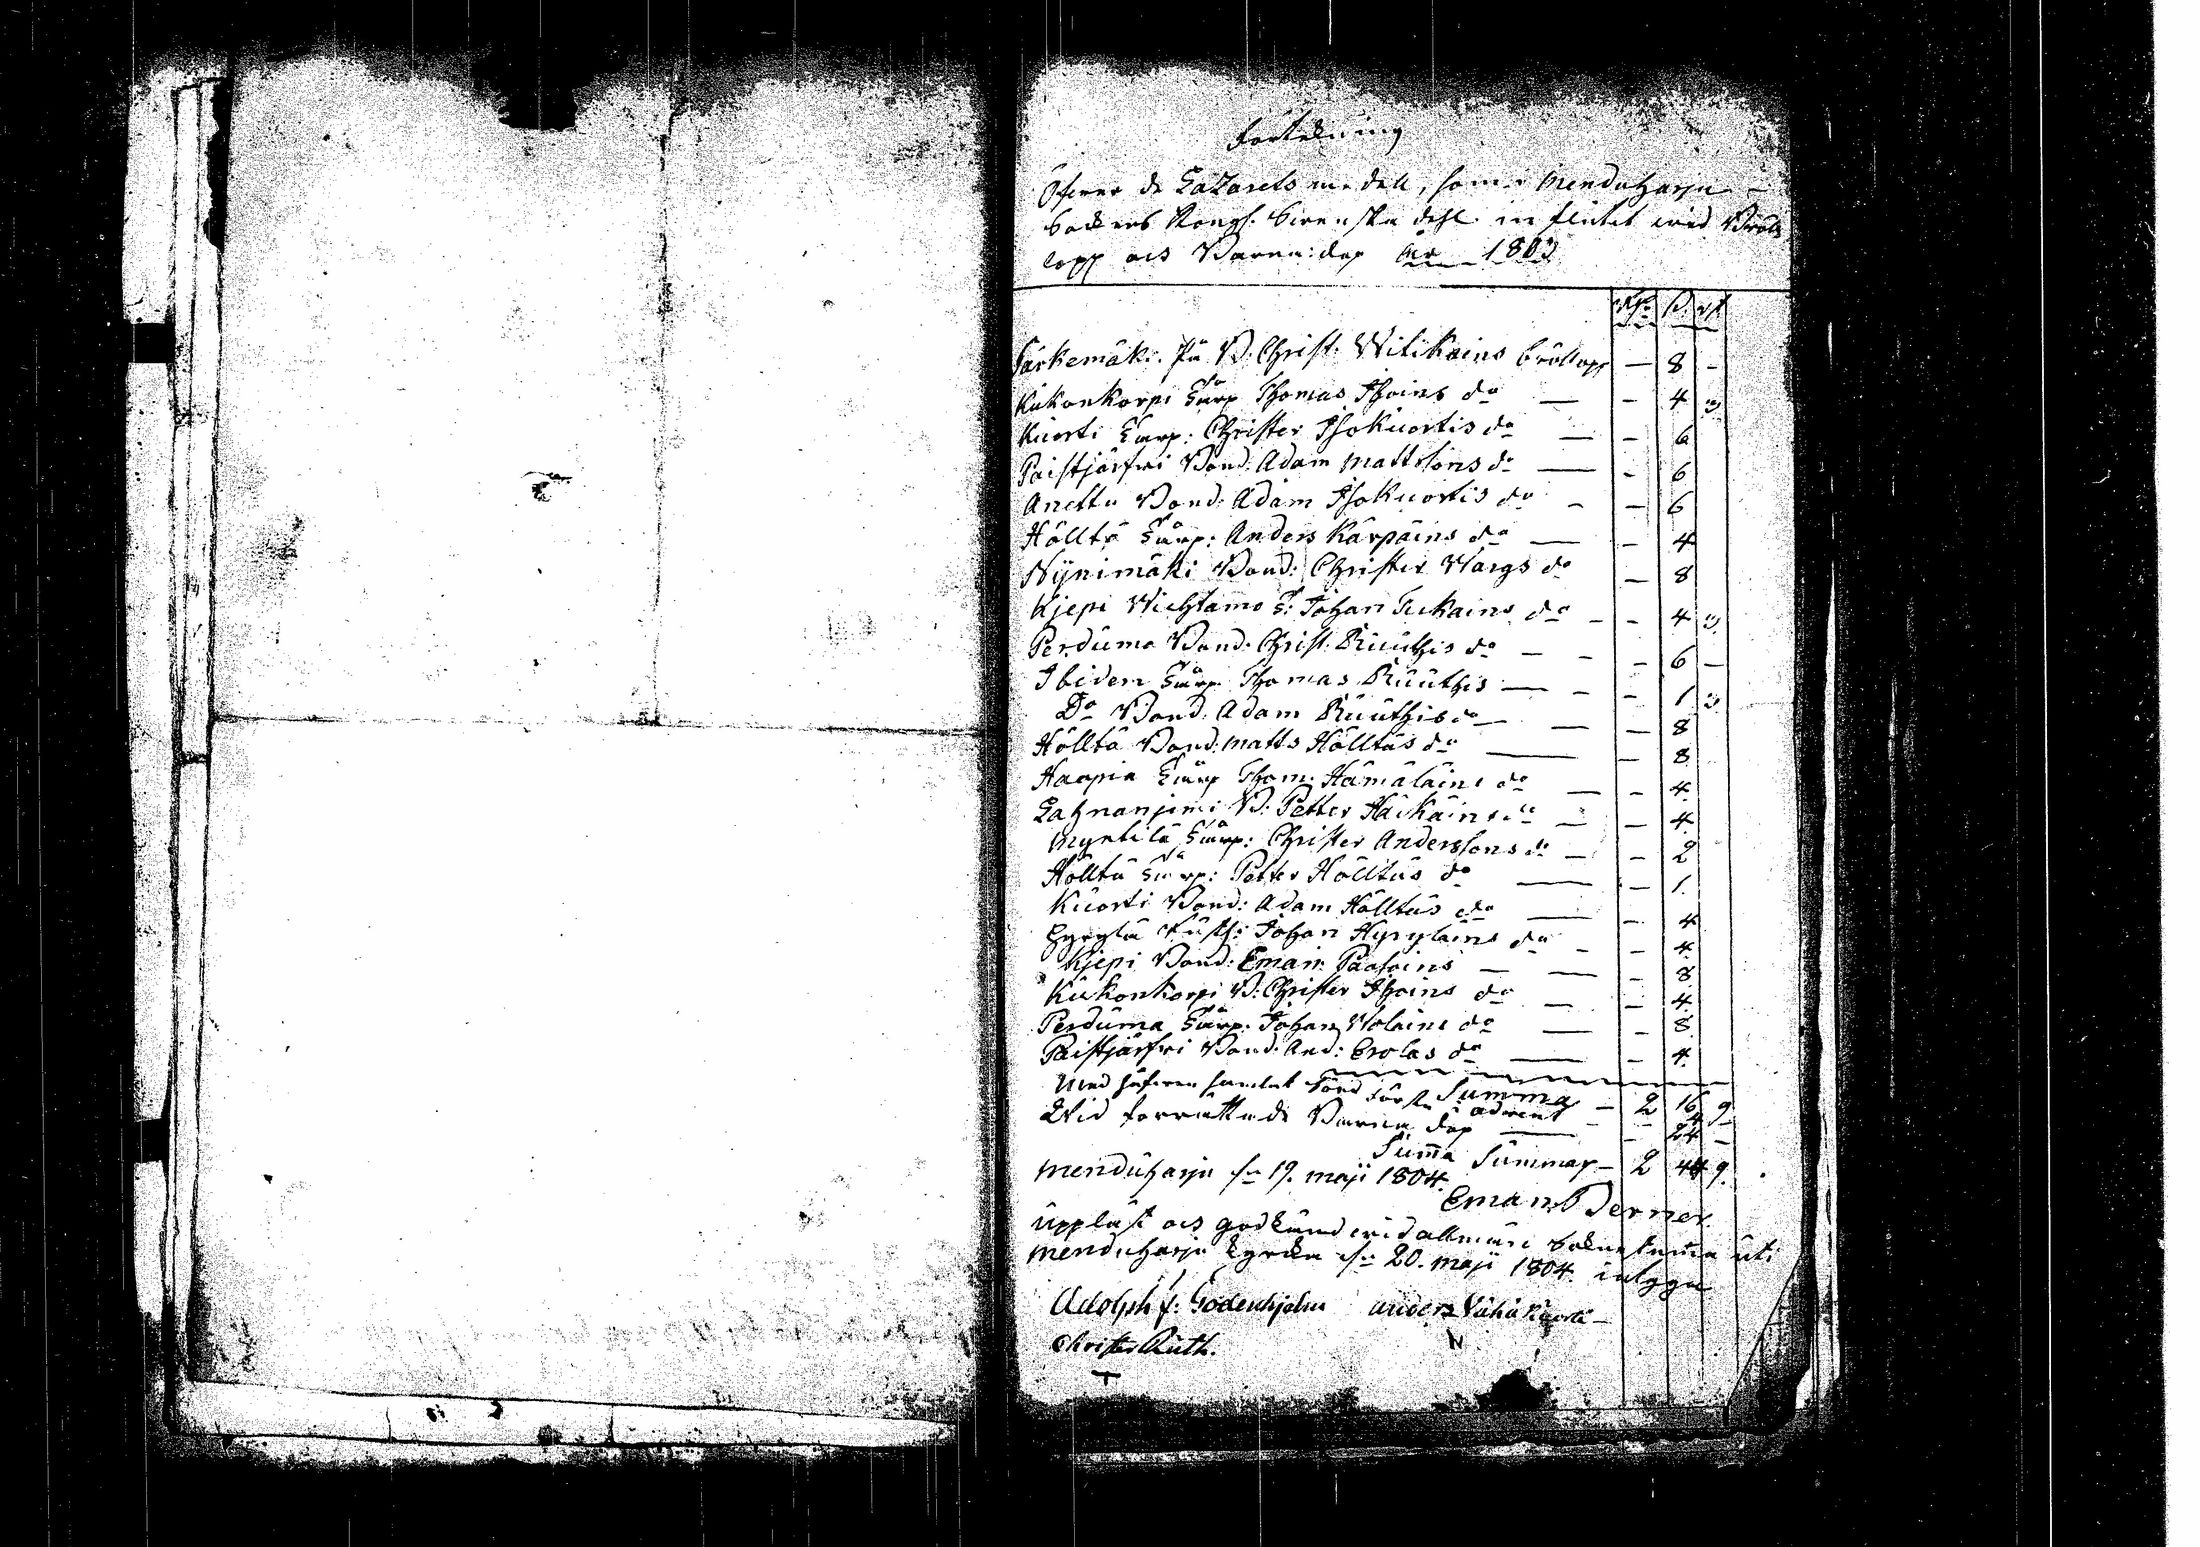 Förtekning
Öfver de Lazarets medell, som i Menduharju
Sockens Kongl. Svenska dehl. influtet med Bröl-
lopp ock Barns:dop År 1803
Rdr ß. rst
Särkemäki. På B. Christ: Wilikains bröllopp — 8 -
Kukonkorpi Enrp Thomas Ihoins do — - 4 3
Kuorti Enrp: Christer Isokuortis do — - 6
Paistjärfwi Bond: Adam Mattsons do — - 6
Anettu Bond: Adam Isokuortis do - — 6
Hölltä Enrp: Anders Kärpäins do — - 4
Nynimäki Bond: Christer Wargs do — 8
Kjepi Wichtamo E: Johan Tukains do - - 4 3
Perduma Bond: Christ: Rüüthis do — - - 6 —
Ibidem Enrp Thomas Rüüthis — - - 1 3
Do Bond. Adam Rüüthis do — — — 8
Hölltä Bond: Matts Hölltäs do — — 8
Haapia Enrp Thom: Hämäläins do — — 4
Lahnanjemi B: Petter Häikäins do — — 4
Myntilä Enrp: Christer Anderssons do — - 2
Hölltä Enrp: Petter Hölltäs do — - 1
Kuorti Bond: Adam Hölltäs do — - 4
Johan Hyrylains do - - 4
Kjepi Bond: Eman: Paasoins — — - 8
Kukonkorpi B: Christer Ihoins do — — 4
Perduma Enrp: Johan Wolains do — - 8
Paistjärfwi Bond: And: Erolas do — - 4
Summa — 2 16 9
Med håfven samlat Sönd: första advent - - 4 -
Wid förrättade Barna dop — — 24 —
Suma Summar — 2 44 9.
Menduharju d. 19. Maji 1804.
Eman: Perner.
Uppläst ock godkänd wid allmän Sokne stäma uti
Menduharju Kyrka d. 20. Maji 1804. intyga
Adolph f: Godenhjelm Anders Vähä Kuorti
Christer Rüth.